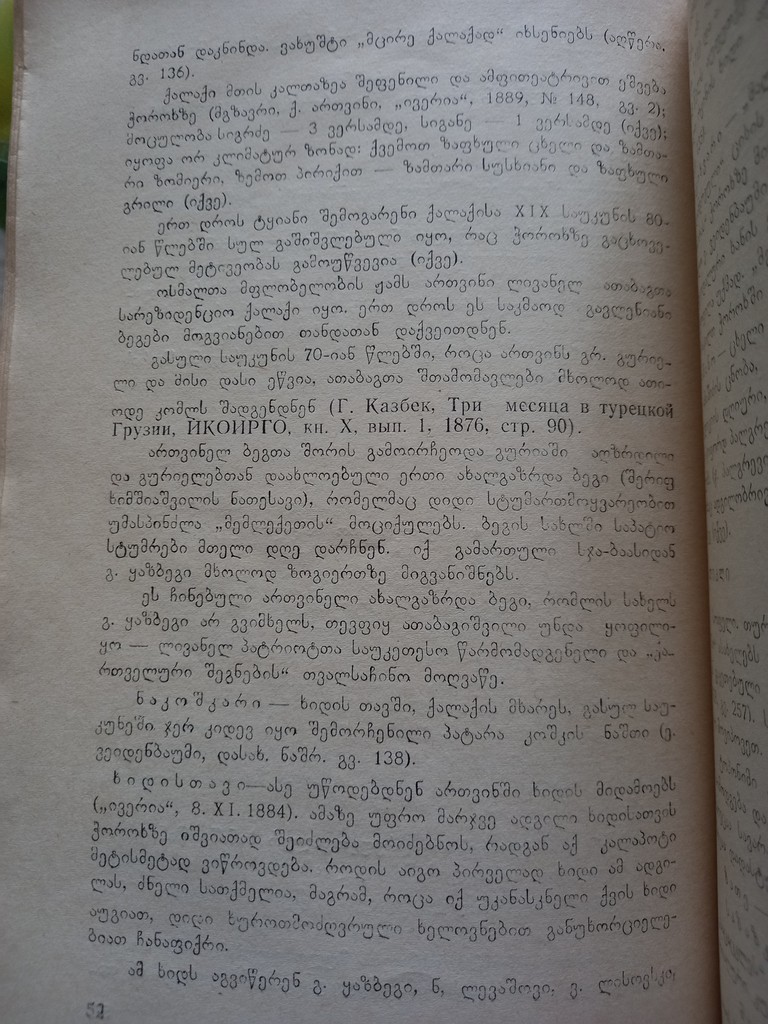 ნდათან დაკნინდა. ვახუშტი „მცირე ქალაქად“ იხსენიებს (აღწერა,
გვ. 136).
ქალაქი მთის კალთაზეა შეფენილი და ამფითეატრივით ეშვება
ჭოროხზე (მგზავრი, ქ. ართვინი, „ივერია“, 1889, № 148, გვ. 2);
მოცულობა სიგრძე — 3 ვერსამდე, სიგანე — 1 ვერსამდე (იქვე);
იყოფა ორ კლიმატურ ზონად: ქვემოთ ზაფხული ცხელი და ზამთა-
რი ზომიერი, ზემოთ პირიქით — ზამთარი სუსხიანი და ზაფხული
გრილი (იქვე).
ერთ დროს ტყიანი შემოგარენი ქალაქისა XIX საუკუნის 80-
იან წლებში სულ გაშიშვლებული იყო, რაც ჭოროხზე გაცხოვე-
ლებულ მეტივეობას გამოუწვევია (იქვე).
ოსმალთა მფლობელობის ჟამს ართვინი ლივანელ ათაბაგთა
სარეზიდენციო ქალაქი იყო. ერთ დროს ეს საკმაოდ გავლენიანი
ბეგები მოგვიანებით თანდათან დაქვეითდნენ.
გასული საუკუნის 70-იან წლებში, როცა ართვინს გრ. გურიე-
ლი და მისი დასი ეწვია, ათაბაგთა შთამომავლები მხოლოდ ათი-
ოდე კომლს შადგენდნენ (Г. Казбек, Три месяца в турецкой
Грузии, ИКОИРГО, кн. X, вып. 1, 1876, стр. 90).
ართვინელ ბეგთა შორის გამოირჩეოდა გურიაში აღზრდილი
და გურიელებთან დაახლოებული ერთი ახალგაზრდა ბეგი (შერიფ
ხიმშიაშვილის ნათესავი), რომელმაც დიდი სტუმართმოყვარეობით
უმასპინძლა „მემლექეთის“ მოციქულებს. ბეგის სახლში საპატიო
სტუმრები მთელი დღე დარჩნენ. იქ გამართული სჯა-ბაასიდან
გ. ყაზბეგი მხოლოდ ზოგიერთზე მიგვანიშნებს.
ეს ჩინებული ართვინელი ახალგაზრდა ბეგი, რომლის სახელს
გ. ყაზბეგი არ გვიმხელს, თევფიყ ათაბაგიშვილი უნდა ყოფილი-
ყო — ლივანელ პატრიოტთა საუკეთესო წარმომადგენელი და „ქა-
რთველური შეგნების“ თვალსაჩინო მოღვაწე.
ნაკოშკარი — ხიდის თავში, ქალაქის მხარეს, გასულ საუ-
კუნეში ჯერ კიდევ იყო შემორჩენილი პატარა კოშკის ნაშთი (ე.
ვეიდენბაუმი, დასახ. ნაშრ. გვ. 138).
ხიდისთავი—ასე უწოდებდნენ ართვინში ხიდის მიდამოებს
(„ივერია“, 8. XI. 1884). ამაზე უფრო მარჯვე ადგილი ხიდისათვის
ჭოროხზე იშვიათად შეიძლება მოიძებნოს, რადგან აქ კალაპოტი
მეტისმეტად ვიწროვდება. როდის აიგო პირველად ხიდი ამ ადგი-
ლას, ძნელი სათქმელია, მაგრამ, როცა იქ უკანასკნელი ქვის ხიდი
აუგიათ, დიდი ხუროთმოძღვრული ხელოვნებით განუხორციელე-
ბიათ ჩანაფიქრი.
ამ ხიდს აგვიწერენ გ. ყაზბეგი, ნ. ლევაშოვი, ვ. ლისოვსკი,
52